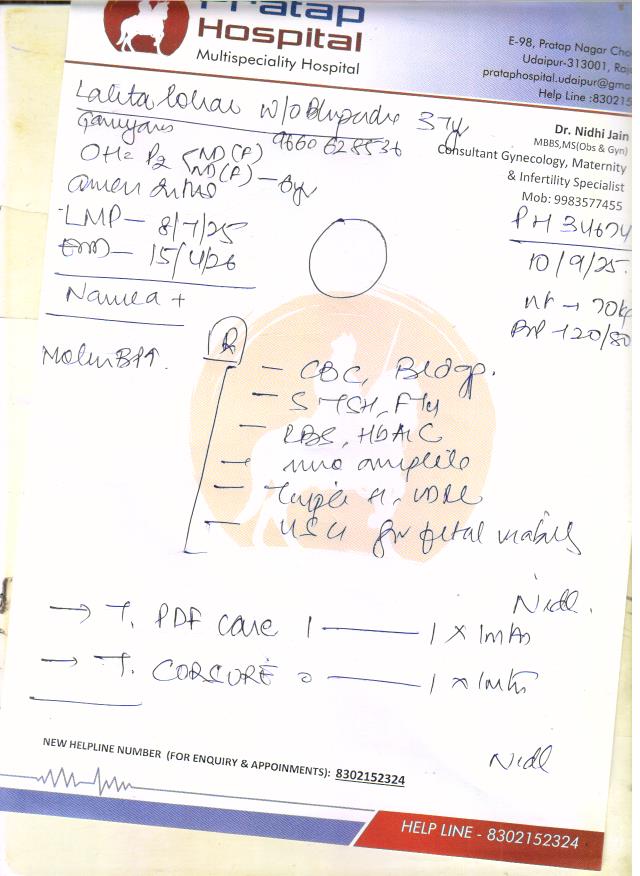 Pratap
Hospital
Multispeciality Hospital
E-98, Pratap Nagar Cho
Udaipur-313001, Raj
prataphospital.udaipur@gma
Help Line :83021
Lalita Lohar w/o 37y
9660628536
Dr. Nidhi Jain
MBBS,MS(Obs & Gyn)
Consultant Gynecology, Maternity
& Infertility Specialist
Mob: 9983577455
OH= P2 ND(F)
ND(F) - 8yr
LMP - 8/7/25
EDD - 15/4/26
PH 34674
10/9/25.
wt → 70kg
BP - 120/80
Nausea +
R
- CBC, Bldgp.
- S TSH, FT4
- RBS, HbA1C
- urine complete
- Triple H, VDRL
- USG for fetal viability
Nidhi.
→ T. PDF care 1 — 1 x 1mth
→ T. CORCURE 0 — 1 x 1mth
Nidhi
NEW HELPLINE NUMBER (FOR ENQUIRY & APPOINMENTS): 8302152324
HELP LINE - 8302152324